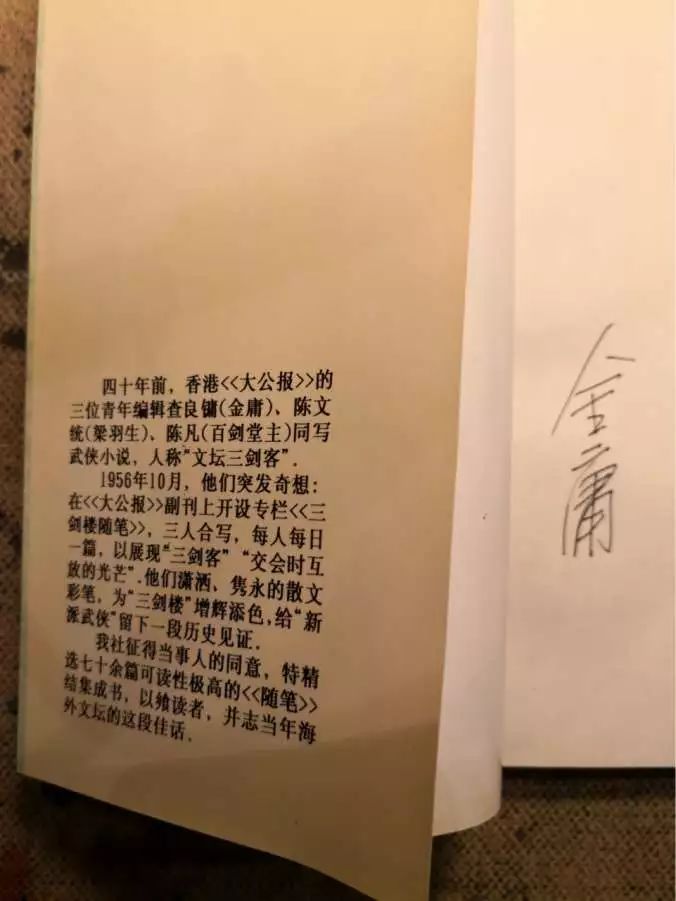 四十年前，香港<<大公报>>的
三位青年编辑查良镛(金庸)、陈文
统(梁羽生)、陈凡(百剑堂主)同写
武侠小说，人称“文坛三剑客”.
1956年10月，他们突发奇想：
在<<大公报>>副刊上开设专栏<<三
剑楼随笔>>，三人合写，每人每日
一篇，以展现“三剑客”“交会时互
放的光芒”.他们潇洒、隽永的散文
彩笔，为“三剑楼”增辉添色，给“新
派武侠”留下一段历史见证.
我社征得当事人的同意，特精
选七十余篇可读性极高的<<随笔>>
结集成书，以飨读者，并志当年海
外文坛的这段佳话.
金庸